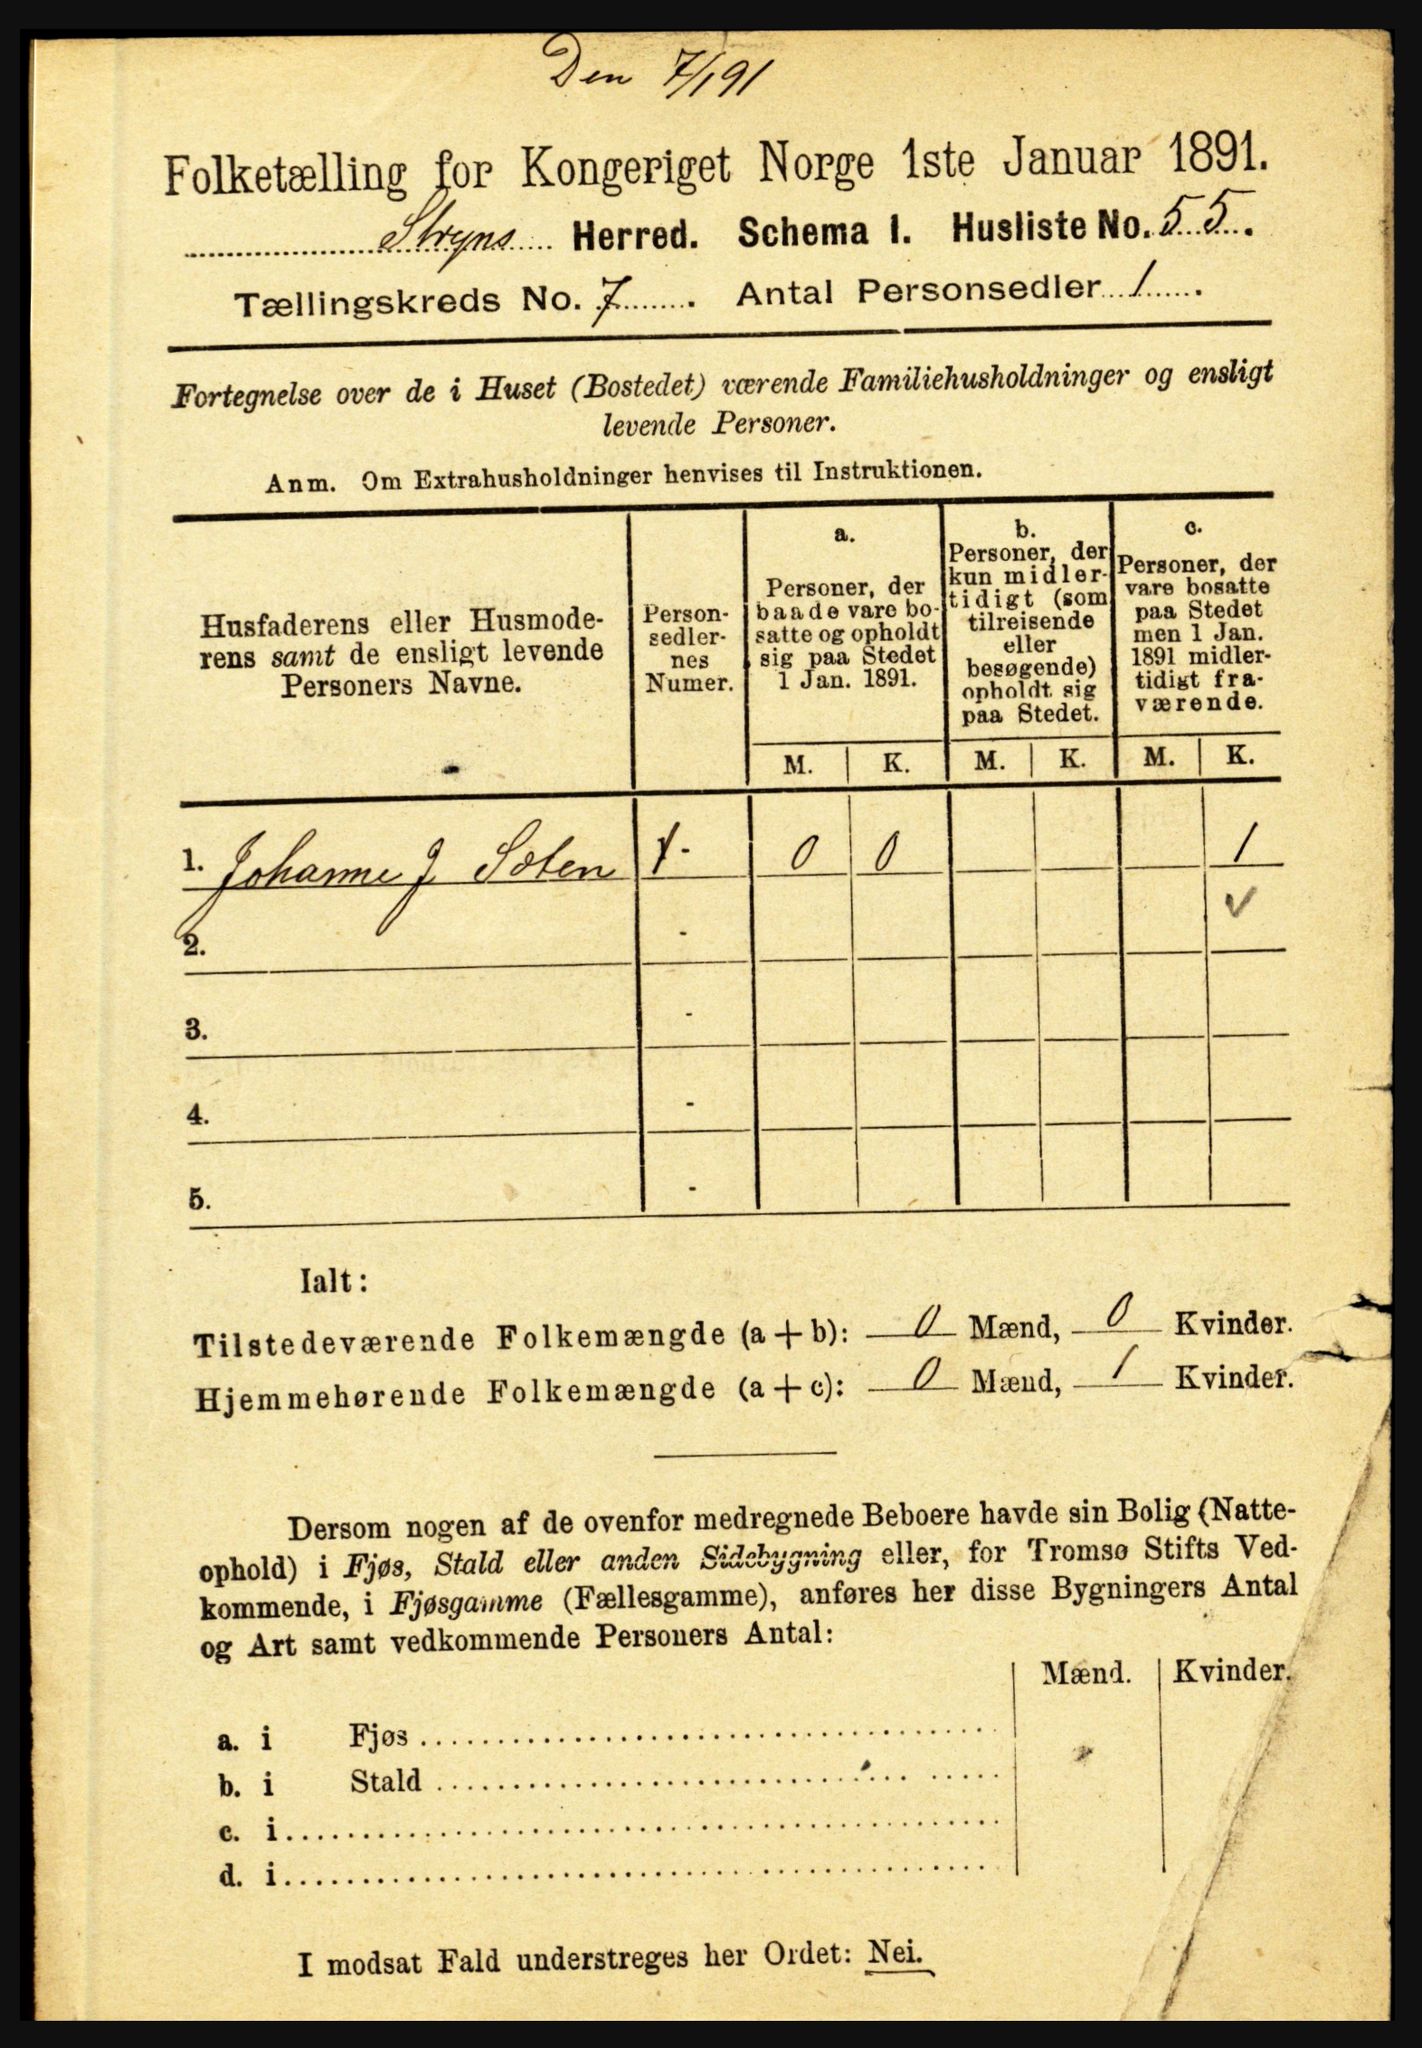 Den 7/1 91
Folketælling for Kongeriget Norge 1ste Januar 1891.
Stryns Herred. Schema I. Husliste No. 55.
Tællingskreds No. 7. Antal Personsedler 1.
Fortegnelse over de i Huset (Bostedet) værende Familiehusholdninger og ensligt
levende Personer.
Anm. Om Extrahusholdninger henvises til Instruktionen.
Husfaderens eller Husmode-
rens samt de ensligt levende
Personers Navne.
Person-
sedler-
nes
Numer.
a.
Personer, der
baade vare bo-
satte og opholdt
sig paa Stedet
1 Jan. 1891.
b.
Personer, der
kun midler-
tidigt (som
tilreisende
eller
besøgende)
opholdt sig
paa Stedet.
c.
Personer, der
vare bosatte
paa Stedet
men 1 Jan.
1891 midler-
tidigt fra-
værende.
M. K. M. K. M. K.
1. Johanne J Sæten 1 - 0 0 1
2. -
3. -
4. -
5. -
Ialt:
Tilstedeværende Folkemængde (a+b): 0 Mænd, 0 Kvinder.
Hjemmehørende Folkemængde (a+c): 0 Mænd, 1 Kvinder.
Dersom nogen af de ovenfor medregnede Beboere havde sin Bolig (Natte-
ophold) i Fjøs, Stald eller anden Sidebygning eller, for Tromsø Stifts Ved-
kommende, i Fjøsgamme (Fællesgamme), anføres her disse Bygningers Antal
og Art samt vedkommende Personers Antal:
Mænd. Kvinder.
a. i Fjøs
b. i Stald
c. i
d. i
I modsat Fald understreges her Ordet: Nei.